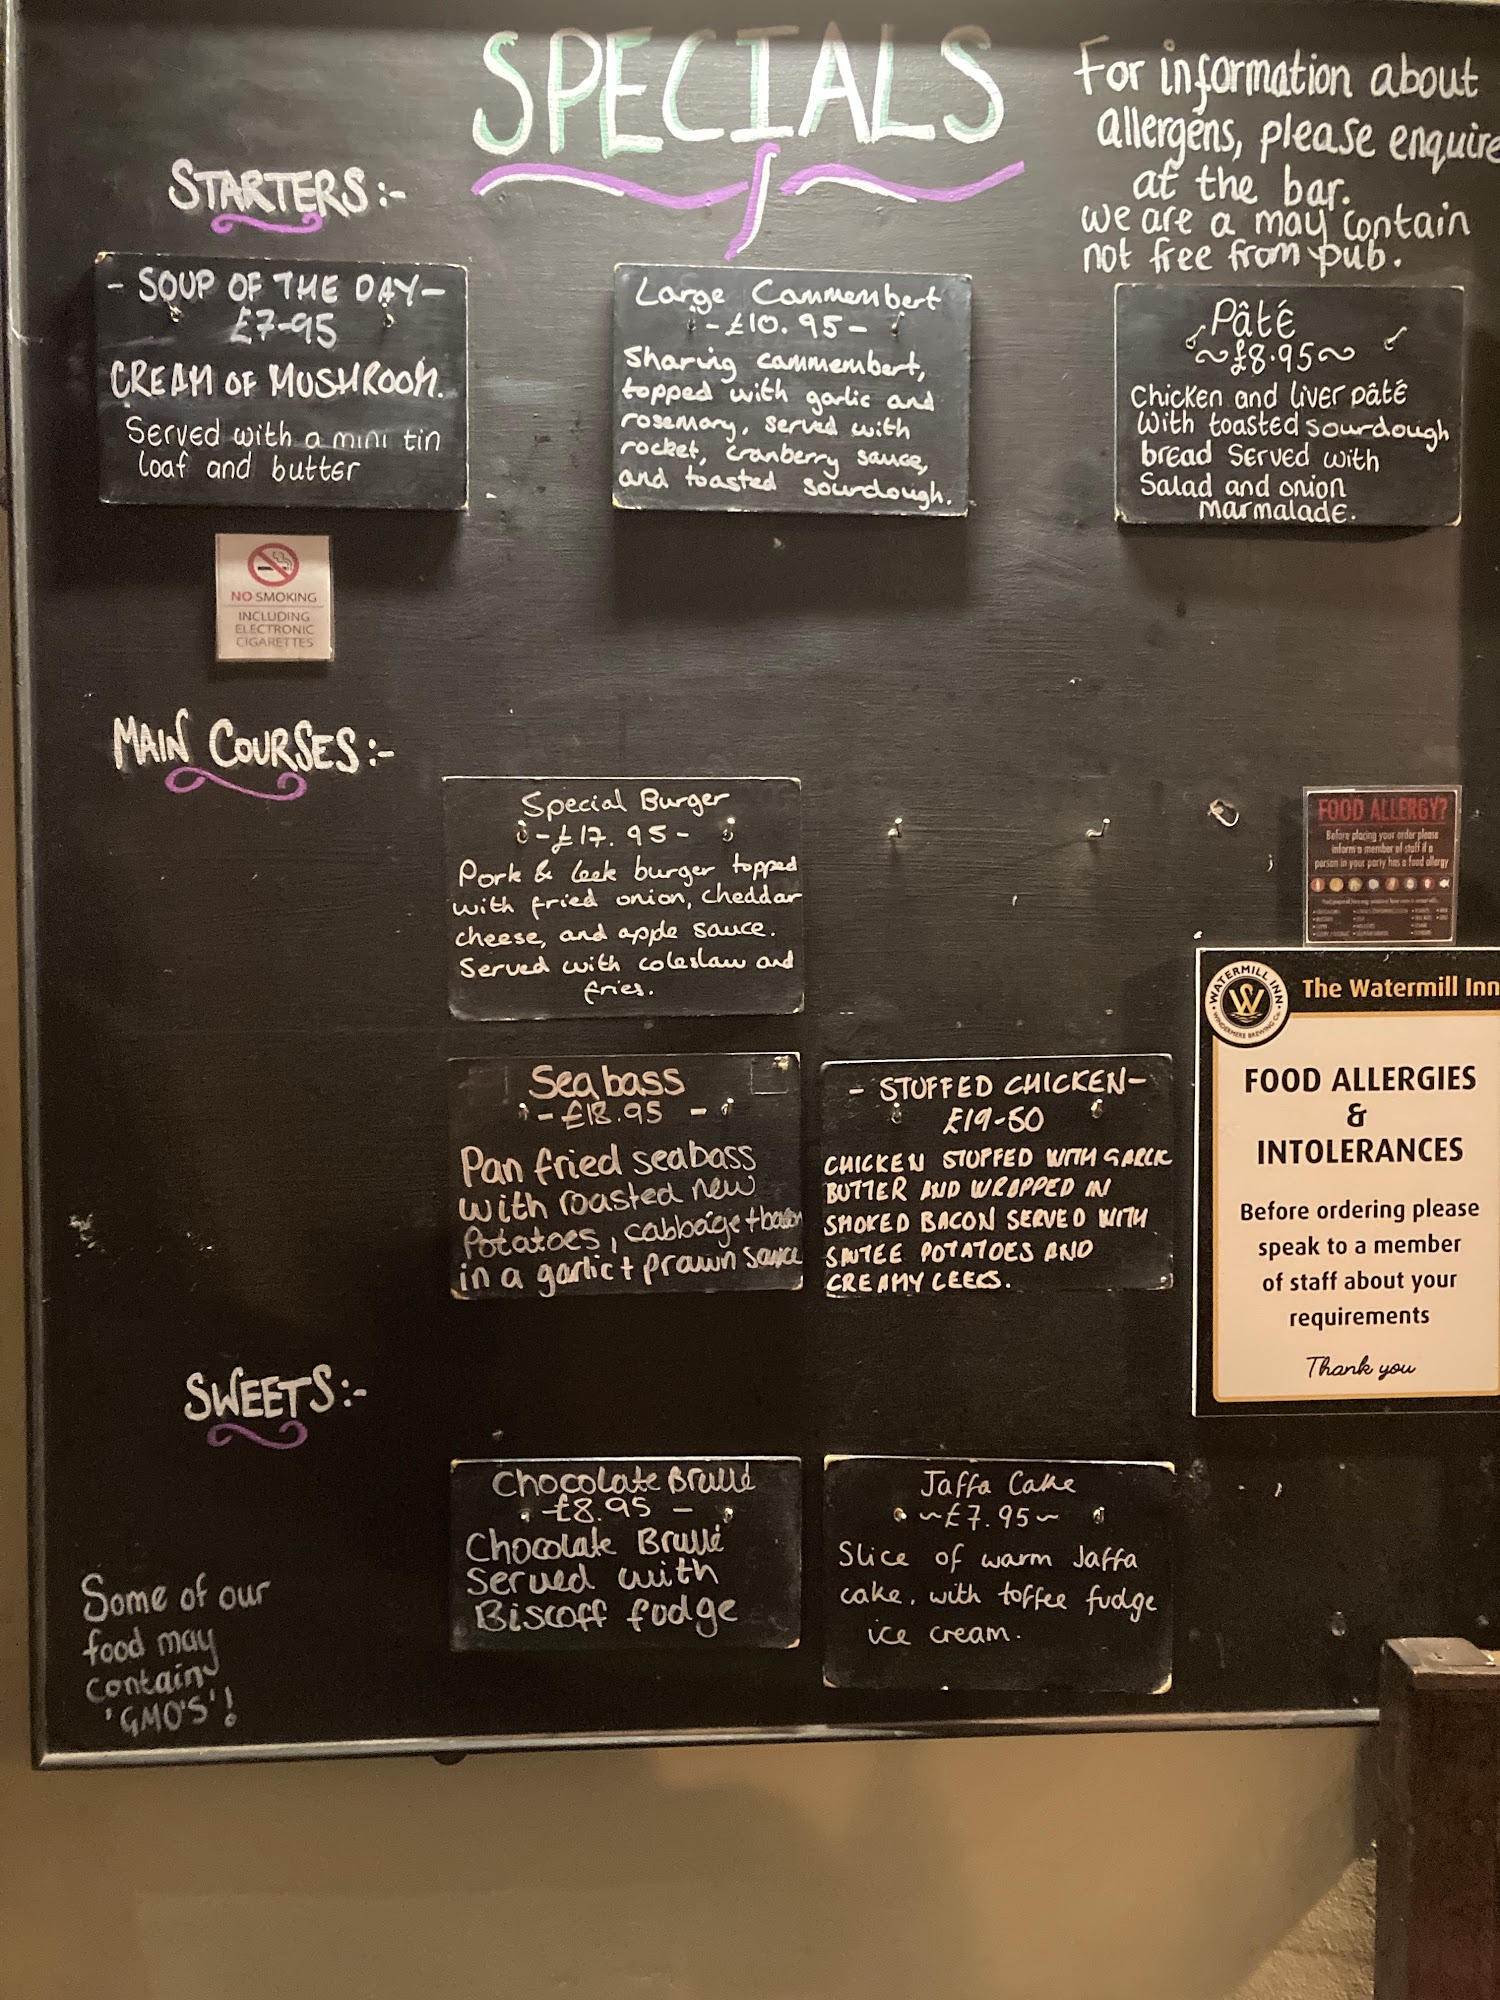 SPECIALS
For information about
allergens, please enquire
at the bar.
we are a may contain
not free from pub.
STARTERS:-
- SOUP OF THE DAY-
£7-95
CREAM OF MUSHROOM.
Served with a mini tin
loaf and butter
Large Cammembert
-£10.95-
Sharing cammembert,
topped with garlic and
rosemary, served with
rocket, cranberry sauce,
and toasted sourdough.
Pâté
~£8.95~
Chicken and liver pâté
with toasted sourdough
bread served with
Salad and onion
marmalade.
NO SMOKING
INCLUDING
ELECTRONIC
CIGARETTES
MAIN COURSES:-
Special Burger
-£17.95-
Pork & leek burger topped
with fried onion, cheddar
cheese, and apple sauce.
Served with coleslaw and
fries.
FOOD ALLERGY?
Before placing your order please
inform a member of staff if a
person in your party has a food allergy
Seabass
-£18.95 -
Pan fried seabass
with roasted new
Potatoes, cabbage + bacon
in a garlic + prawn sauce
- STUFFED CHICKEN-
£19-50
CHICKEN STUFFED WITH GARLIC
BUTTER AND WRAPPED IN
SMOKED BACON SERVED WITH
SAUTEE POTATOES AND
CREAMY LEEKS.
WATERMILL INN
WINDERMERE BREWING Co.
The Watermill Inn
FOOD ALLERGIES
&
INTOLERANCES
Before ordering please
speak to a member
of staff about your
requirements
Thank you
SWEETS:-
Chocolate Brulé
-£8.95 -
Chocolate Brulé
Served with
Biscoff fudge
Jaffa Cake
~£7.95~
Slice of warm Jaffa
cake, with toffee fudge
ice cream.
Some of our
food may
contain
'GMO'S'!